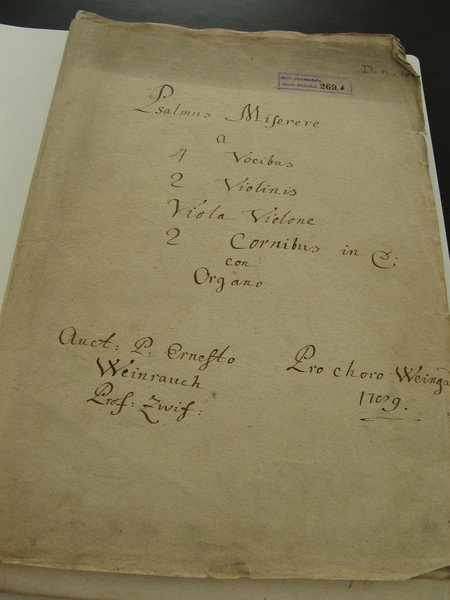 Den.
269.
Psalmus Miserere
a
4 Vocibus
2 Violinis
Viola Violone
2 Cornibus in
con
Organo
Auct: P: Ernesto
Weinrauch
Prof: Zwif:
Pro choro Weing
1789.